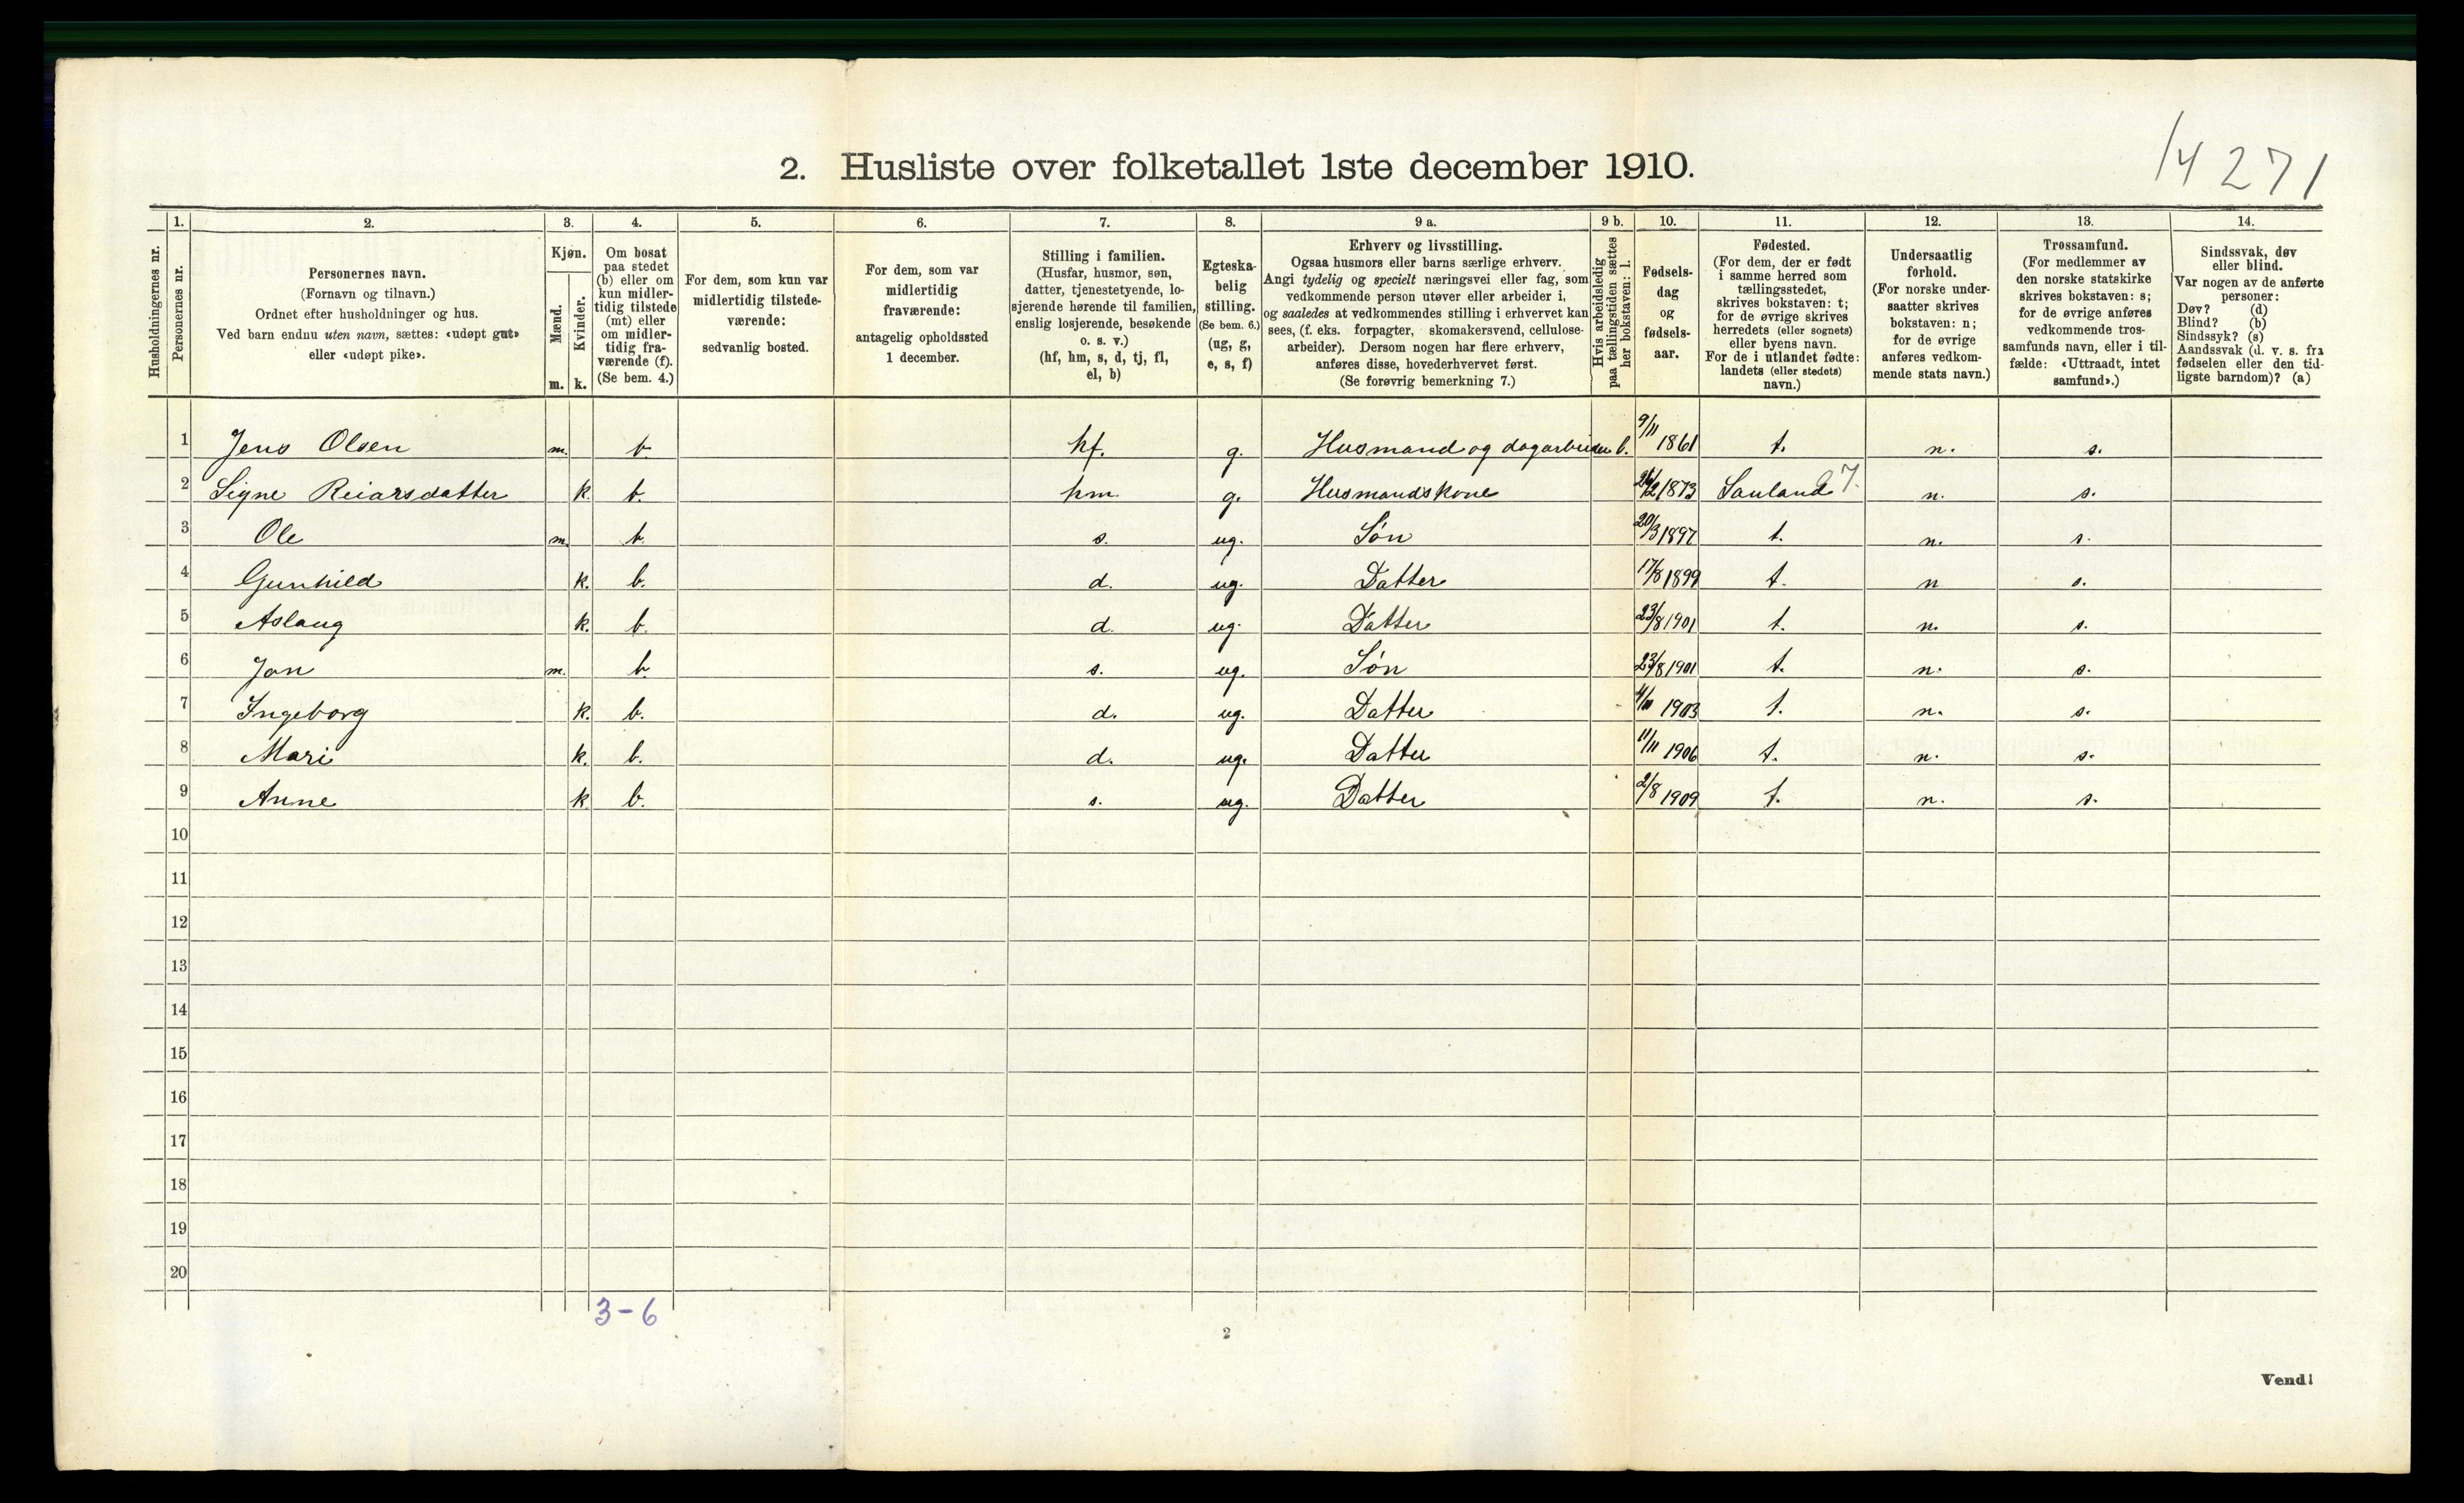 14271
2. Husliste over folketallet 1ste december 1910.
Husholdningernes nr.
1. Personernes nr.
2. Personernes navn.
(Fornavn og tilnavn.)
Ordnet efter husholdninger og hus.
Ved barn endnu uten navn, sættes: «udøpt gut»
eller «udøpt pike».
3. Kjøn.
Mænd. m.
Kvinder. k.
4. Om bosat
paa stedet
(b) eller om
kun midler-
tidig tilstede
(mt) eller
om midler-
tidig fra-
værende (f).
(Se bem. 4.)
5. For dem, som kun var
midlertidig tilstede-
værende:
sedvanlig bosted.
6. For dem, som var
midlertidig
fraværende:
antagelig opholdssted
1 december.
7. Stilling i familien.
(Husfar, husmor, søn,
datter, tjenestetyende, lo-
sjerende hørende til familien,
enslig losjerende, besøkende
o. s. v.)
(hf, hm, s, d, tj, fl,
el, b)
8. Egteska-
belig
stilling.
(Se bem. 6.)
(ug, g,
e, s, f)
9 a. Erhverv og livsstilling.
Ogsaa husmors eller barns særlige erhverv.
Angi tydelig og specielt næringsvei eller fag, som
vedkommende person utøver eller arbeider i,
og saaledes at vedkommendes stilling i erhvervet kan
sees, (f. eks. forpagter, skomakersvend, cellulose-
arbeider). Dersom nogen har flere erhverv,
anføres disse, hovederhvervet først.
(Se forøvrig bemerkning 7.)
9 b. Hvis arbeidsledig
paa tællingstiden sættes
her bokstaven: l.
10. Fødsels-
dag
og
fødsels-
aar.
11. Fødested.
(For dem, der er født
i samme herred som
tællingsstedet,
skrives bokstaven: t;
for de øvrige skrives
herredets (eller sognets)
eller byens navn.
For de i utlandet fødte:
landets (eller stedets)
navn.)
12. Undersaatlig
forhold.
(For norske under-
saatter skrives
bokstaven: n;
for de øvrige
anføres vedkom-
mende stats navn.)
13. Trossamfund.
(For medlemmer av
den norske statskirke
skrives bokstaven: s;
for de øvrige anføres
vedkommende tros-
samfunds navn, eller i til-
fælde: «Uttraadt, intet
samfund».)
14. Sindssvak, døv
eller blind.
Var nogen av de anførte
personer:
Døv? (d)
Blind? (b)
Sindssyk? (s)
Aandssvak (d. v. s. fra
fødselen eller den tid-
ligste barndom)? (a)
1 Jens Olsen m. b. hf. g. Husmand og dagarbeider l. 9/11 1861 t. n. s.
2 Signe Reiarsdatter k. b. hm. g. Husmandskone 1873 Sauland 27. n. s.
3 Ole m. b. s. ug. Søn 20/3 1897 t. n. s.
4 Gunhild k. b. d. ug. Datter 17/8 1899 t. n s.
5 Aslaug k. b. d. ug. Datter 23/8 1901 t. n. s.
6 Jon m. b. s. ug. Søn 23/8 1901 t. n. s.
7 Ingeborg k. b. d. ug. Datter 1903 t. n. s.
8 Mari k. b. d. ug. Datter 11/11 1906 t. n. s.
9 Anne k b. s. ug. Datter 2/8 1909 t. n. s.
10
11
12
13
14
15
16
17
18
19
20
3-6
2
Vend!